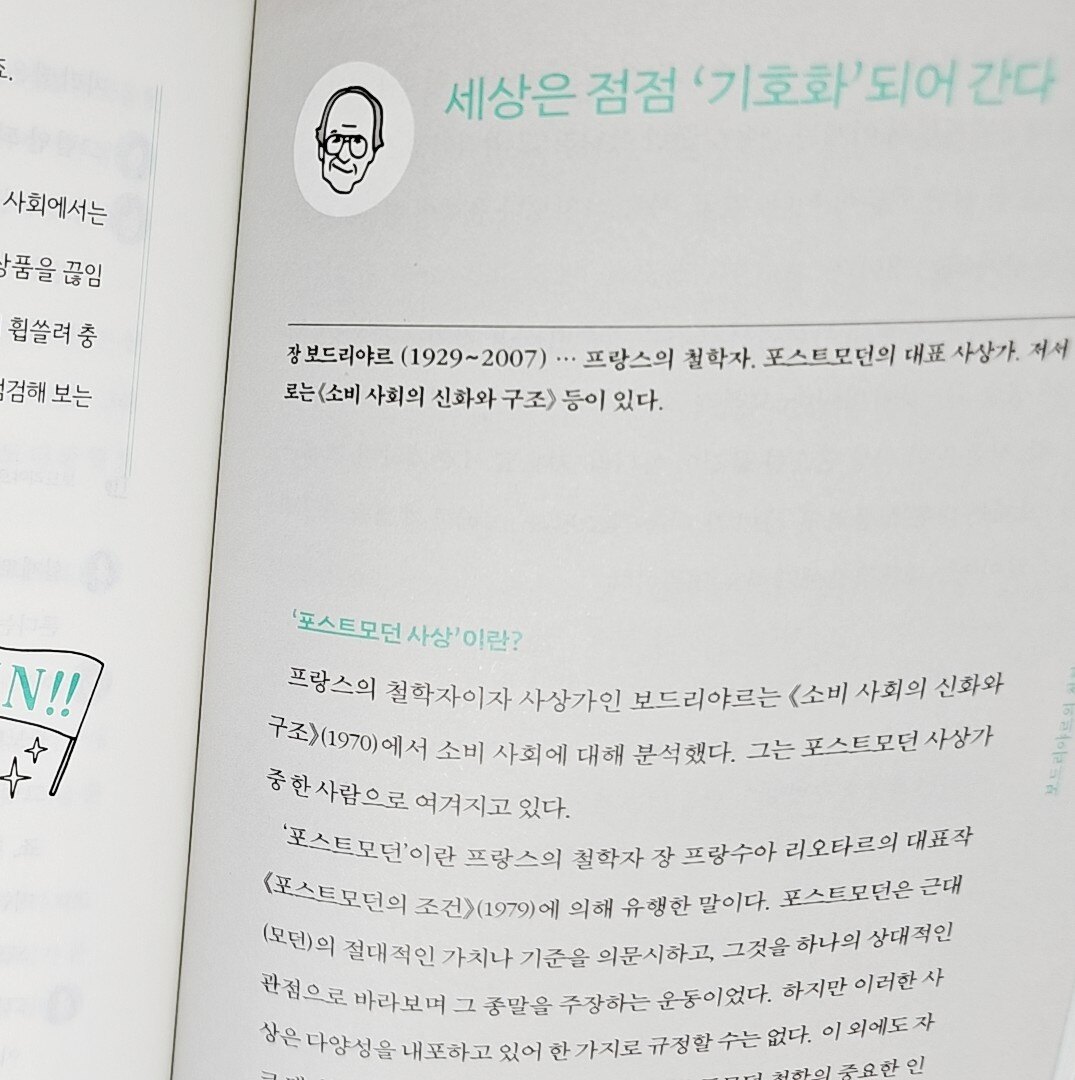 죠.
사회에서는
상품을 끊임
휩쓸려 충
점검해 보는
N!!
세상은 점점 ‘기호화’되어 간다
장 보드리야르 (1929~2007) … 프랑스의 철학자. 포스트모던의 대표 사상가. 저서
로는 《소비 사회의 신화와 구조》 등이 있다.
‘포스트모던 사상’이란?
프랑스의 철학자이자 사상가인 보드리야르는 《소비 사회의 신화와
구조》(1970)에서 소비 사회에 대해 분석했다. 그는 포스트모던 사상가
중 한 사람으로 여겨지고 있다.
‘포스트모던’이란 프랑스의 철학자 장 프랑수아 리오타르의 대표작
《포스트모던의 조건》(1979)에 의해 유행한 말이다. 포스트모던은 근대
(모던)의 절대적인 가치나 기준을 의문시하고, 그것을 하나의 상대적인
관점으로 바라보며 그 종말을 주장하는 운동이었다. 하지만 이러한 사
상은 다양성을 내포하고 있어 한 가지로 규정할 수는 없다. 이 외에도 자
철학의 중요한 인
보드리야르의